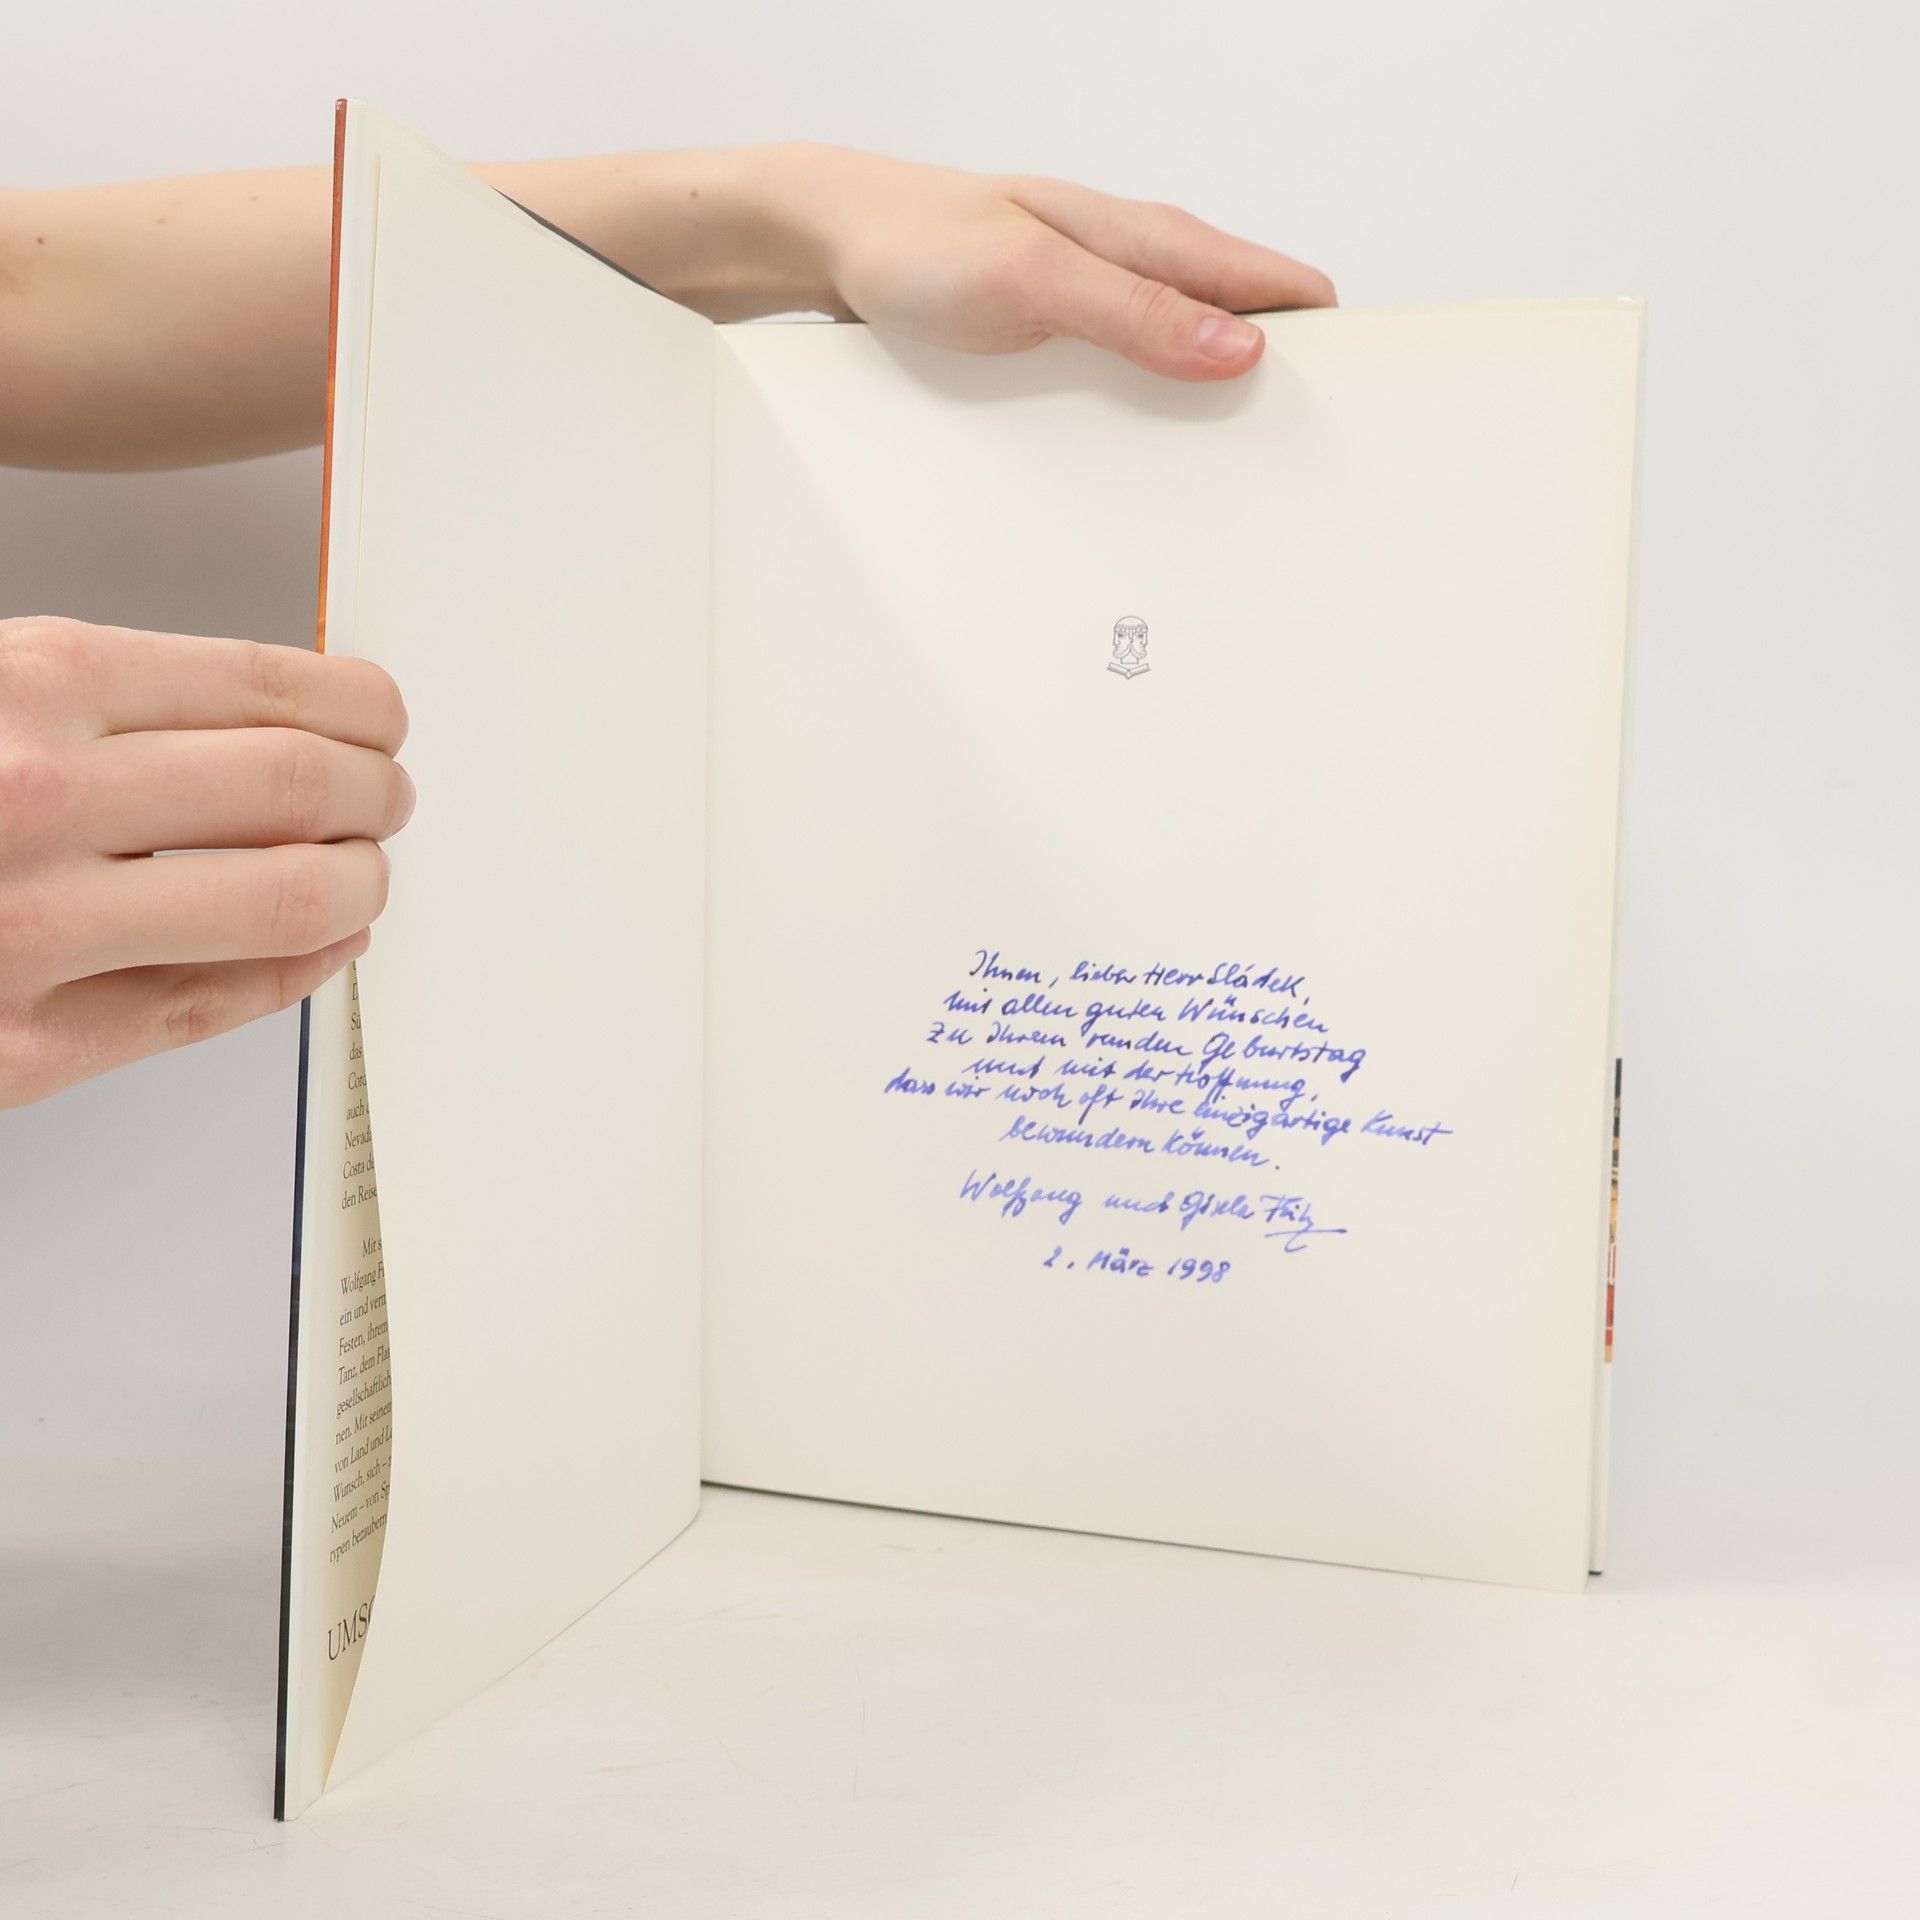 D
Sü
das
Cord
auch
Nevada
Costa de
den Reise
Mit s
Wolfgang F
ein und verm
Festen, ihrem
Tanz, dem Fla
gesellschaftlich
nen. Mit seinem
von Land und L
Wunsch, sich –
Neuem – von Sp
typen bezaubern
UMSC
Ihnen, lieber Herr Sládek,
mit allen guten Wünschen
zu Ihrem runden Geburtstag
und mit der Hoffnung,
dass wir noch oft Ihre einzigartige Kunst
bewundern können.
Wolfgang und Gisela Fritz
2. März 1998